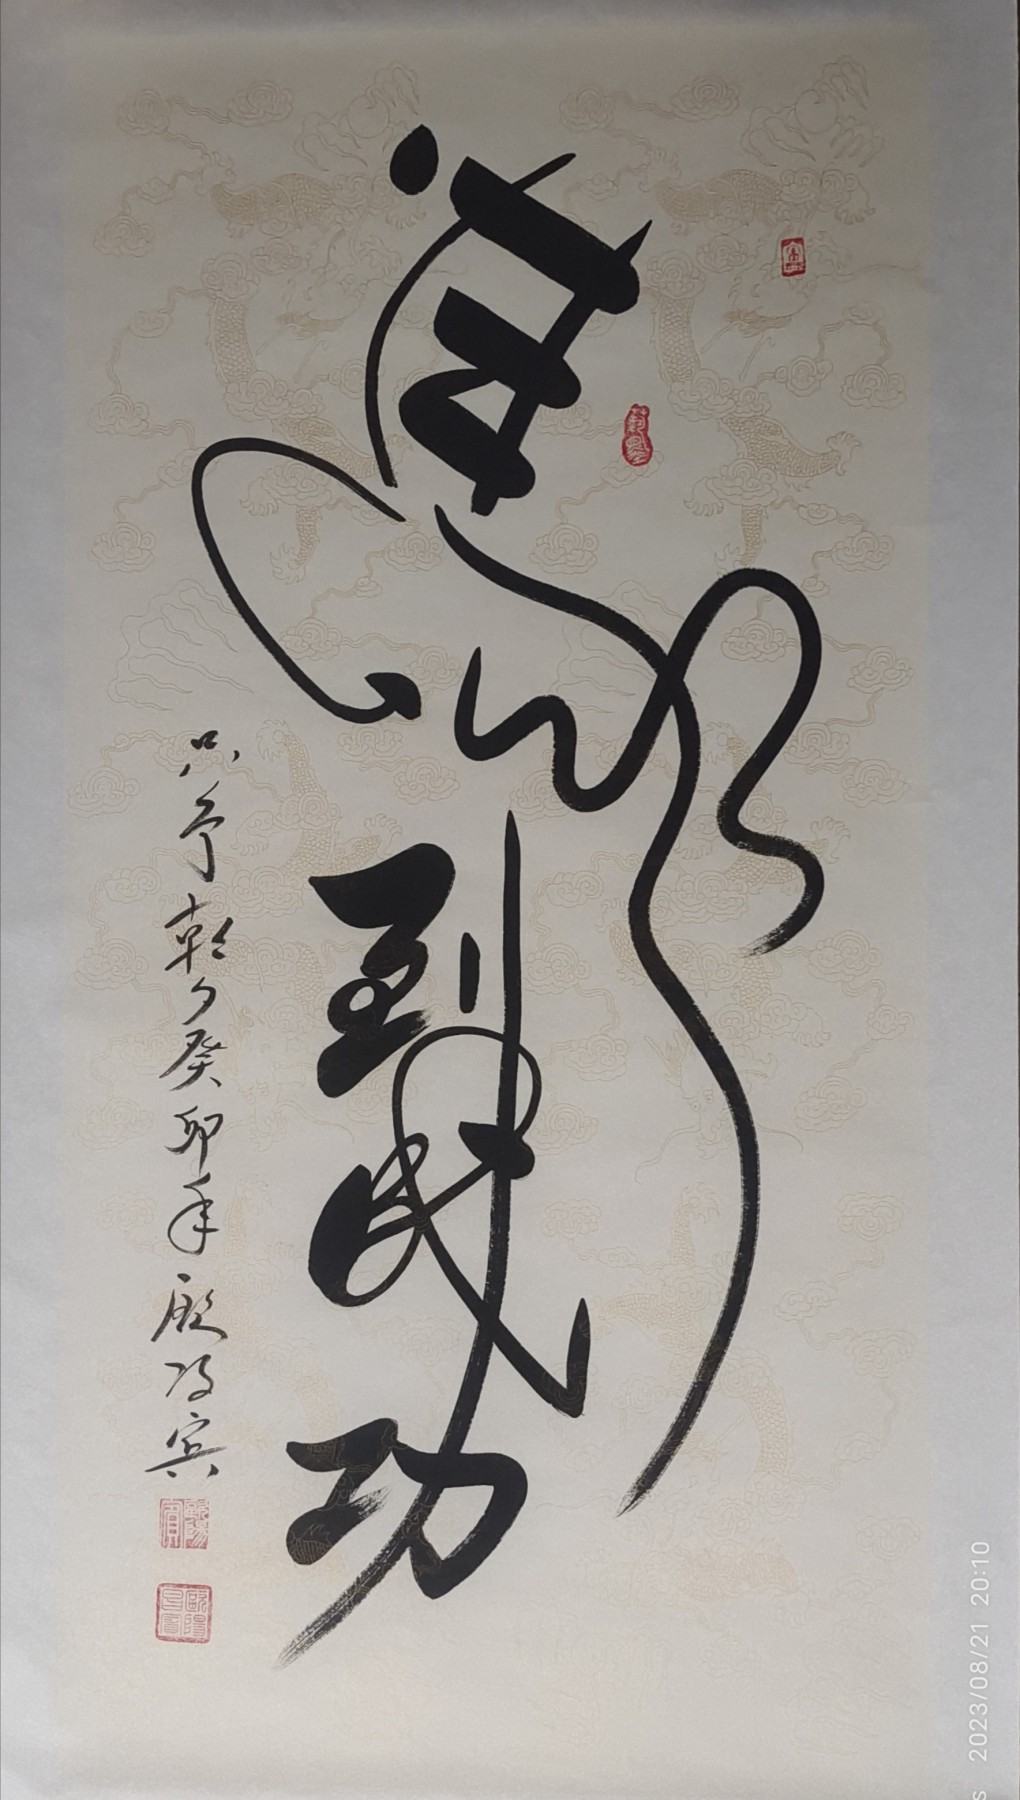 馬到成功
只争朝夕癸卯年殿鸿宾
2023/08/21 20:10